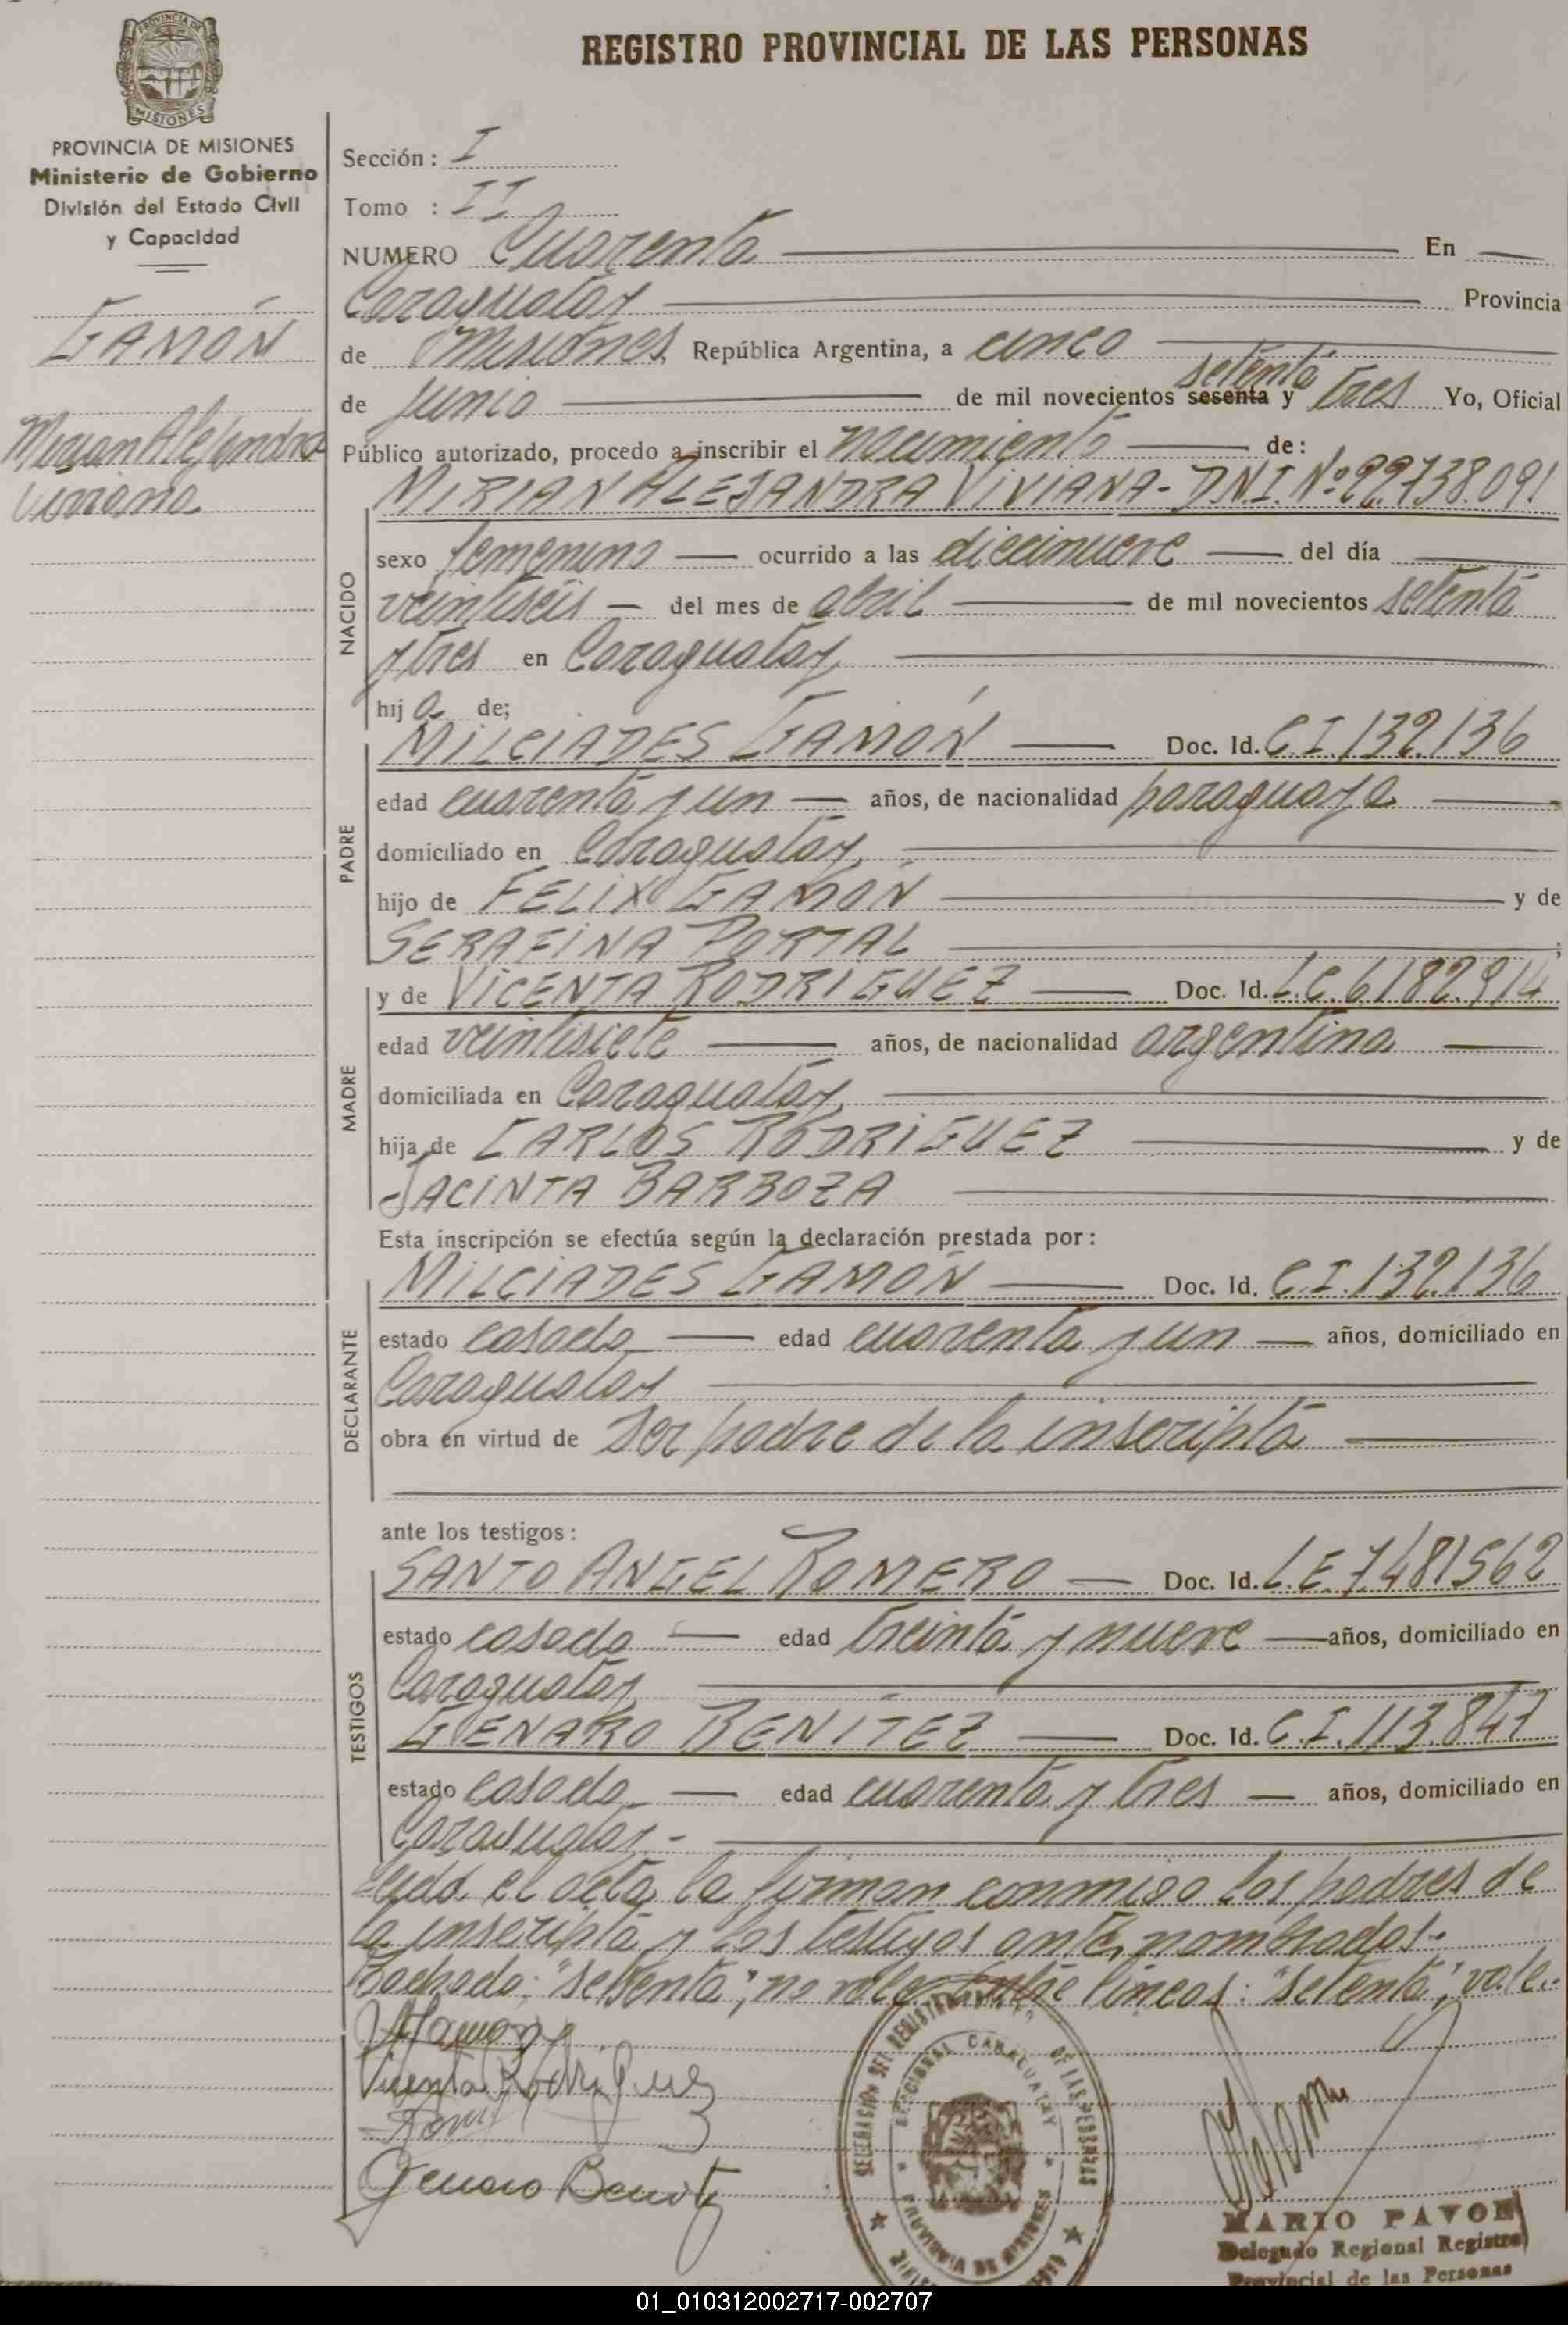 REGISTRO PROVINCIAL DE LAS PERSONAS
MISIONES
PROVINCIA DE MISIONES
Ministerio de Gobierno
División del Estado Civil
y Capacidad
GAMÓN
Mirian Alejandra
Viviana
Sección: I
Tomo : II
NUMERO Cuarenta En
Caraguatay Provincia
de Misiones República Argentina, a cinco
de junio de mil novecientos sesenta setenta y tres Yo, Oficial
Público autorizado, procedo a inscribir el nacimiento de:
NACIDO
MIRIAN ALEJANDRA VIVIANA- D.N.I. Nº 22.738.091
sexo femenino ocurrido a las diecinueve del día
veintiseis del mes de abril de mil novecientos setenta
y tres en Caraguatay
hija de;
PADRE
MILCIADES GAMÓN Doc. Id. C.I. 132.136
edad cuarenta y un años, de nacionalidad paraguaya
domiciliado en Caraguatay
hijo de FELIX GAMÓN y de
SERAFINA PORTAL ;
MADRE
y de VICENTA RODRIGUEZ Doc. Id. L.C. 6.182.914
edad veintisiete años, de nacionalidad argentina
domiciliada en Caraguatay
hija de CARLOS RODRIGUEZ y de
JACINTA BARBOZA
Esta inscripción se efectúa según la declaración prestada por:
DECLARANTE
MILCIADES GAMÓN Doc. Id. C.I. 132.136
estado casado edad cuarenta y un años, domiciliado en
Caraguatay
obra en virtud de ser padre de la inscripta
ante los testigos:
TESTIGOS
SANTO ANGEL ROMERO Doc. Id. L.E. 7.481562
estado casado edad treinta y nueve años, domiciliado en
Caraguatay
GENARO BENITEZ Doc. Id. C.I. 113.847
estado casado edad cuarenta y tres años, domiciliado en
Caraguatay.-
Leída el acta, la firman conmigo los padres de
la inscripta y los testigos ante nombrados.-
Tachado: "sesenta", no vale. Entre líneas: "setenta", vale.-
Vicenta Rodriguez
Genaro Benitez
SECCIONAL CARAGUATAY
DE LAS PERSONAS
PROVINCIA DE MISIONES
MARIO PAVON
Delegado Regional Registro
Provincial de las Personas
01_010312002717-002707